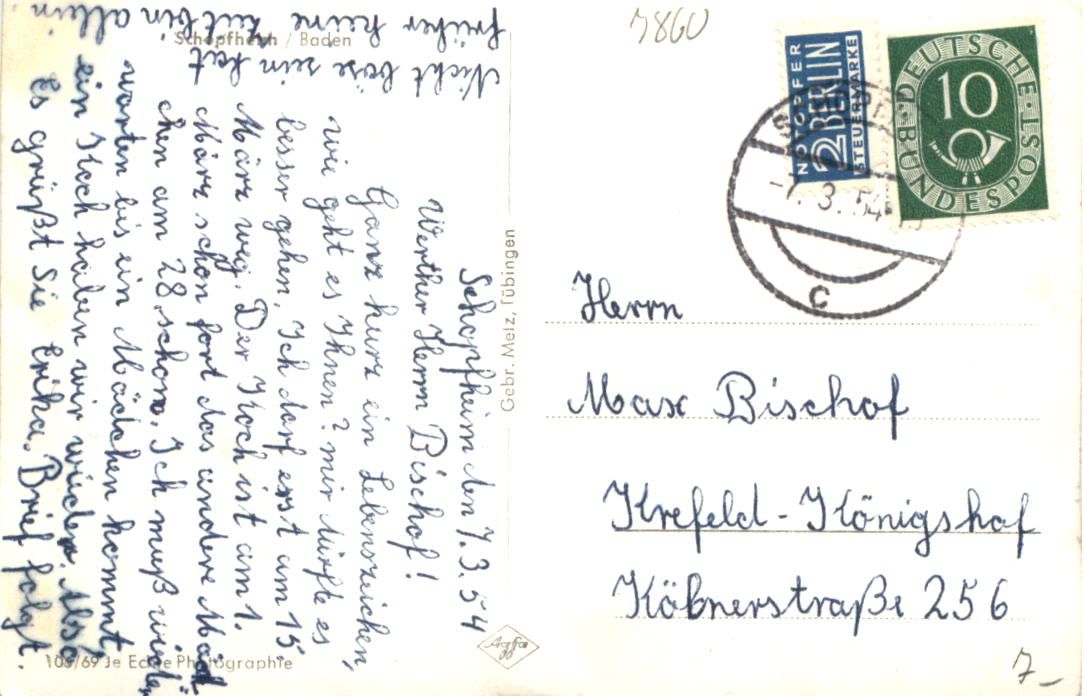 Schopfheim / Baden
Schopfheim den 7.3.54
Werther Herrn Bischof!
Ganz kurz ein Lebenszeichen,
wie geht es Ihnen? mir dürfte es
besser gehen. Ich darf erst am 15.
März weg. Der Koch ist am 1.
März schon fort das andere Mäd
chen am 28. schon. Ich muß wieder
warten bis ein Mädchen kommt,
ein Koch haben wir wieder. Also
Es grüßt Sie Erika. Brief folgt.
Nicht böse sein hat
früher keine Zeit bin allein.
108/69 Je Echte Photographie
Gebr. Metz, Tübingen
Agfa
7860
NOTOPFER
2 BERLIN
STEUERMARKE
DEUTSCHE BUNDESPOST
10
-7.3.54
c
Herrn
Max Bischof
Krefeld-Königshof
Köbnerstraße 256
7.-